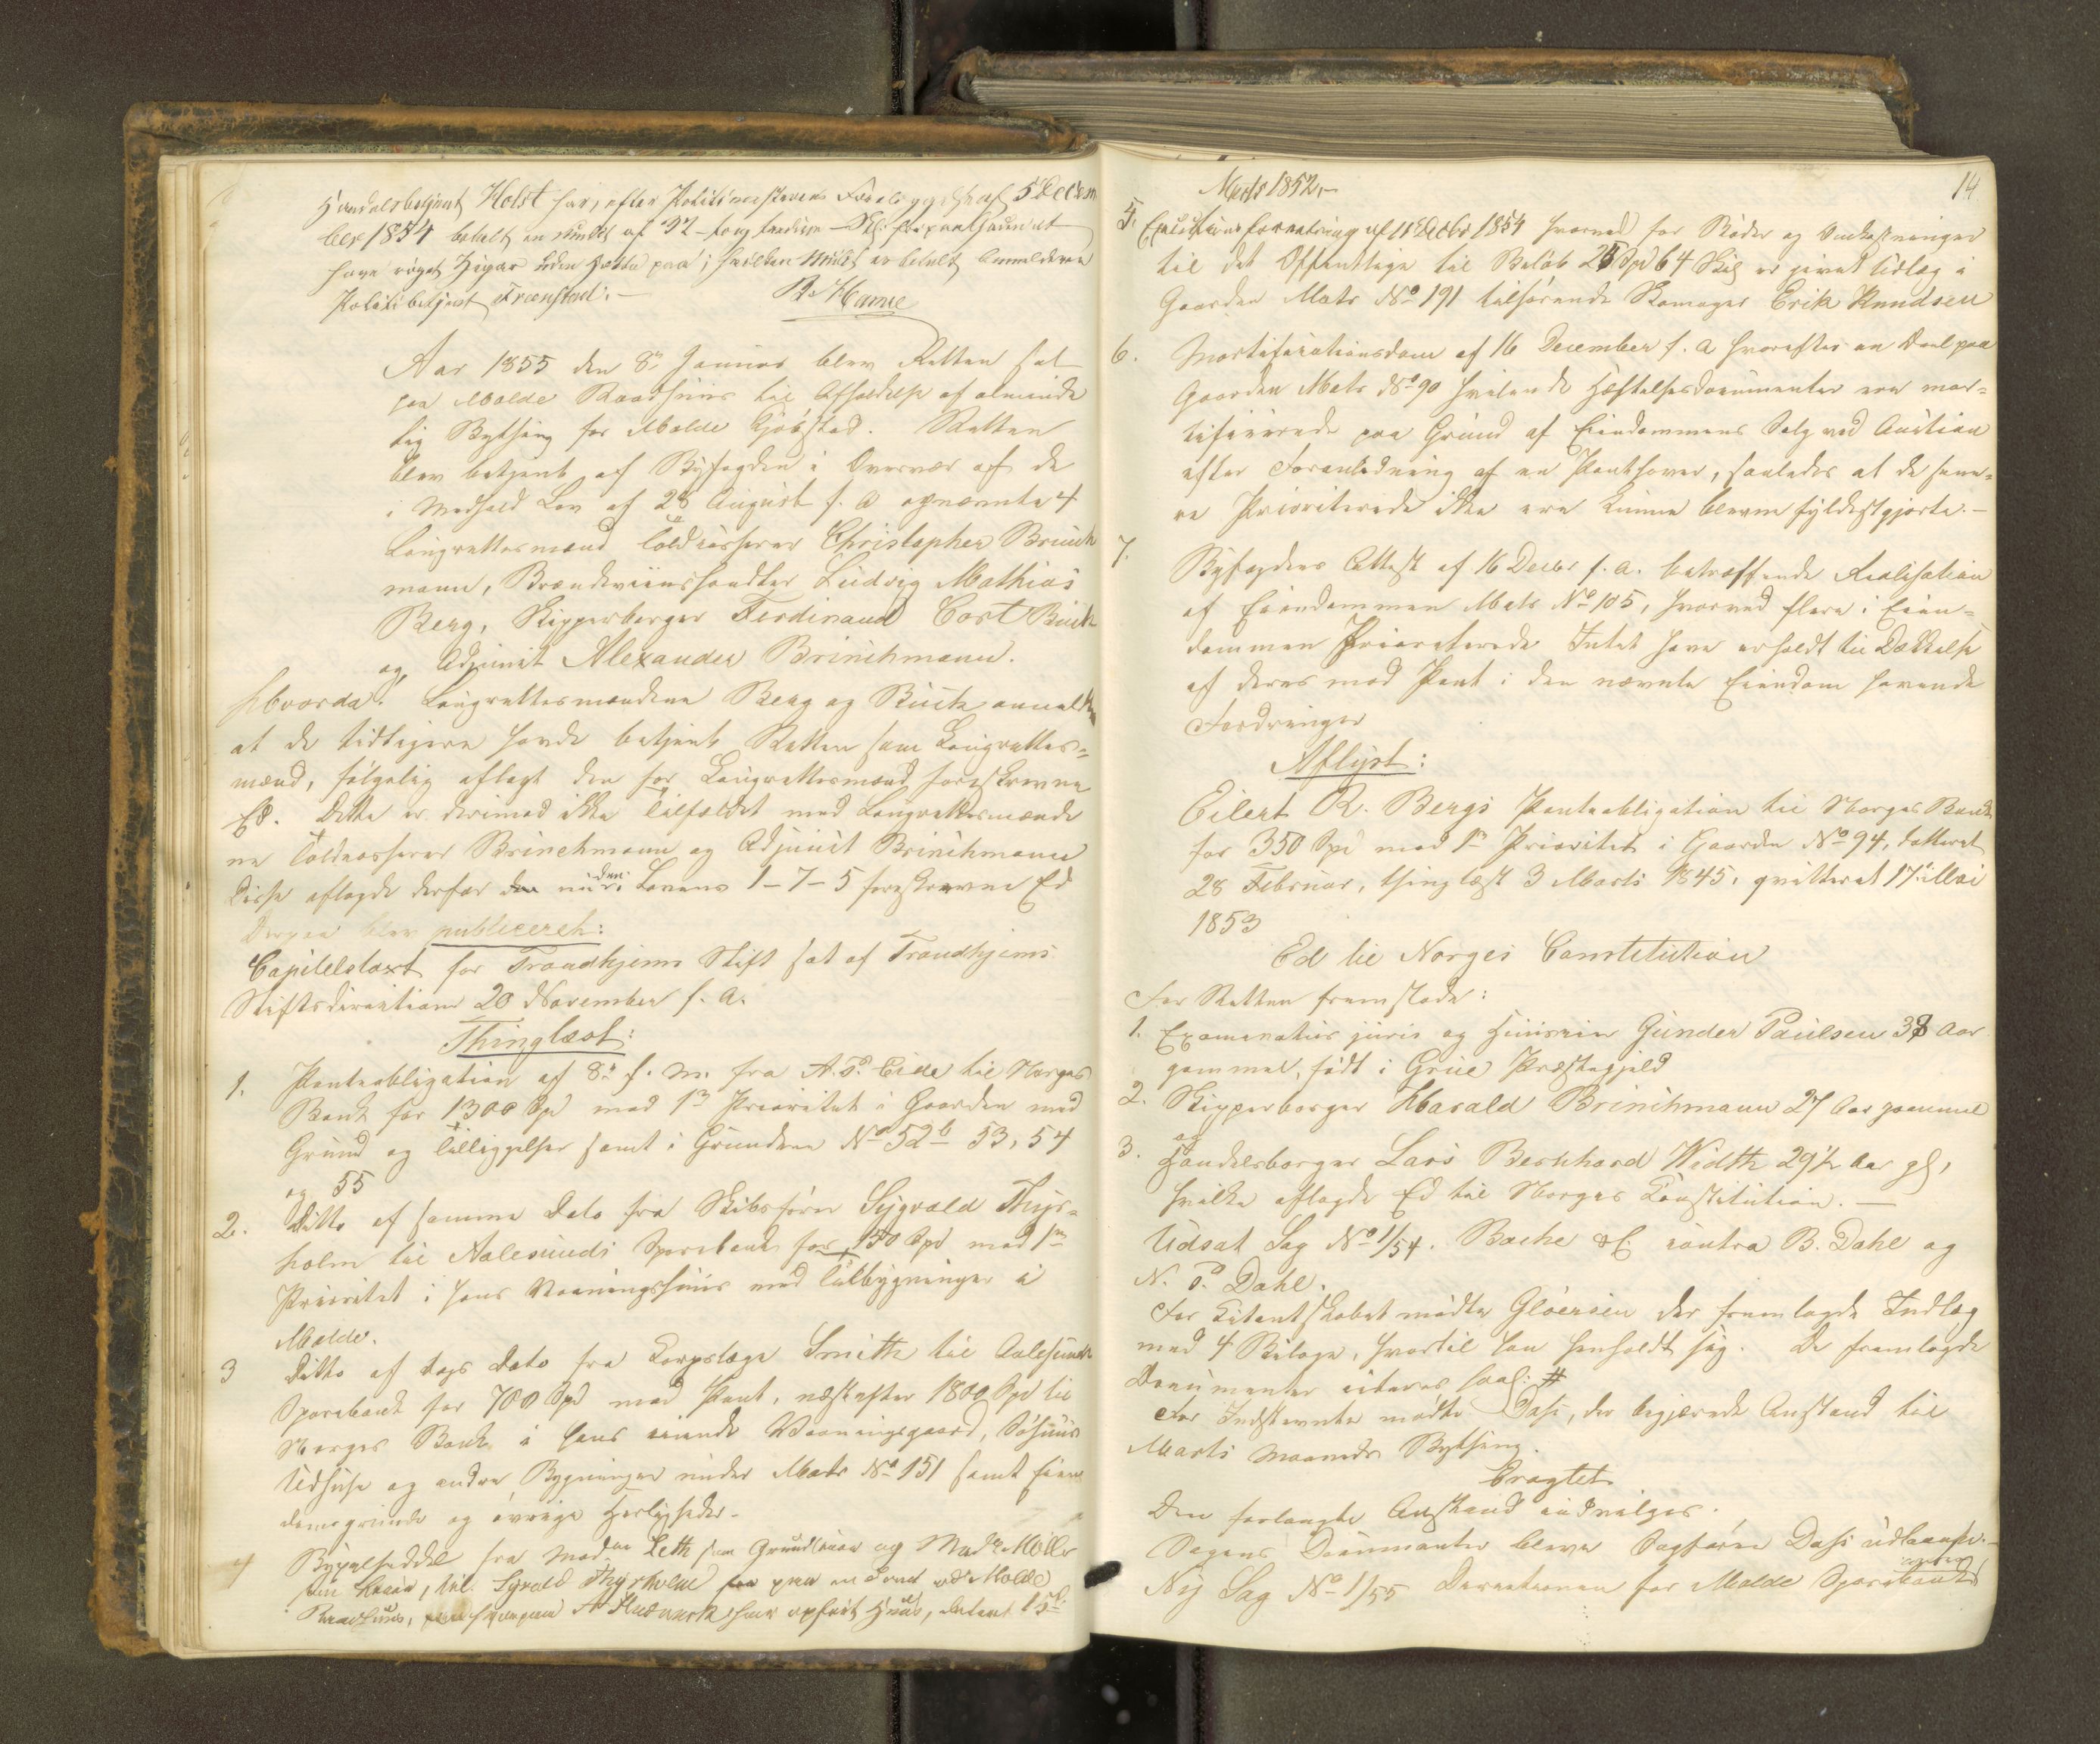 Handelsbetjent Holst har, efter Politimesterens Forelæggelse af 5 Decem
ber 1854 betalt en Mulct af 32 – to og tredive – Sk. for paa Gaden at
have røget Cigar uden Hætte paa; hvilken Mulct er betalt Anmelderen
Politibetjent Frænstad. –
Aar 1855 den 8de Januar blev Retten sat
paa Molde Raadhuus til Afholdelse af alminde
lig Bything for Molde Kjøbstad. Retten
blev betjent af Byfogden i Overvær af de
i Medhold Lov af 28 August f. A opnævnte 4
Laugrettesmænd Toldcasserer Christopher Brinch
mann, Brændeviinshandler Ludvig Mathias
Berg, Skipperborger Ferdinand Cort Buck
og Adjunct Alexander Brinchmann.
Hvorda: Laugrettesmændene Berg og Buck anmeldte
at de tidligere havde betjent Retten som Laugrettes=
mænd, følgelig aflagt den for Laugrettesmænd foreskrevne
Ed. Dette er derimod ikke Tilfældet med Laugrettesmænde
ne Toldcasserer Brinchmann og Adjunct Brinchmann
Disse aflagde derfor den i Lovens 1–7–5 foreskrevne Ed
Derpaa blev publiceret:
Capitelstaxt for Trondhjems Stift sat af Trondhjems
Stiftsdirection 20 November f. A.
Thinglæst:
1. Panteobligation af 8de f. M. fra A. P. Eide til Norges
Bank for 1300 Spd med 1ste Prioritet i Gaarden med
Grund og Tilliggelser samt i Grundene No 52b 53, 54
og 55
2. Ditto af samme Dato fra Skibsfører Sygvald Thys=
holm til Aalesunds Sparebank for 150 Spd med 1ste
Prioritet i hans Vaaningshuus med Tilbygninger i
Molde.
3 Ditto af Dags Dato fra Korpslæge Smith til Aalesunds
Sparebank for 700 Spd med Pant, næstefter 1800 Spd til
Norges Bank i hans eiende Vaaningsgaard, Søhuus
Udhuse og andre Bygninger under Matr No 151 samt Eien
domsgrunde og øvrige Herligheder.
4 Bygselseddel fra Madme Leth som Grundeier og Madme Møller
til Syvald Thysholm paa en Tomt ved Molde
14
Marts 1852, –
5. Executionsforretning af 11te Decbr 1854 hvorved for Bøder og Omkostninger
til det Offentlige til Beløb 25 Spd 64 Sk er givet Udlæg i
Gaarden Matr No 191 tilhørende Skomager Erik Knudsen
6. Mortificationsdom af 16 December f. A hvorefter en Deel paa
Gaarden Matr No 90 hvilende Hæftelsesdocumenter ere mor=
tificerede paa Grund af Eiendommens Salg ved Auction
efter Foranledning af en Panthaver, saaledes at de sene=
re Prioriterede ikke ere kunne blevne fyldestgjorte. –
7. Byfogdens Attest af 16 Decbr f. A. betræffende Realisation
af Eiendommen Matr No 105, hvorved flere i Eien=
dommen Prioriterede Intet have erholdt til Dækkelse
af deres mod Pant i den nævnte Eiendom havende
Fordringer
Aflyst:
Eilert R. Bergs Panteobligation til Norges Bank
for 350 Spd med 1ste Prioritet i Gaarden No 94, dateret
28 Februar, thinglæst 3 Marts 1845, qvitteret 17de Mai
1853
Ed til Norges Constitution
For Retten fremstode:
1. Examinatus juris og Gunder Paulsen 38 Aar
gammel, født i Grue Præstegjeld
2. Skipperborger Harald Brinchmann 27 Aar gammel
og
3. Handelsborger Lars Bernhard Width 29½ Aar gl,
hvilke aflagde Ed til Norges Constitution. –
Udsat Sag No 1/54. Bache & C contra B. Dahl og
N. P. Dahl.
For Citantskabet mødte Gløersen der fremlagde Indlæg
med 4 Bilage, hvortil han henholdt sig. De fremlagde
Documenter citeres saal: #
For Indstevnte mødte Dass, der begjærede Anstand til
Marts Maaneds Bything.
Eragtet
Den forlangte Anstand indvilges.
Sagens Documenter bleve Sagfører Dass udlaante. –
Ny Sag No 1/55 Directionen for Molde Sparebank